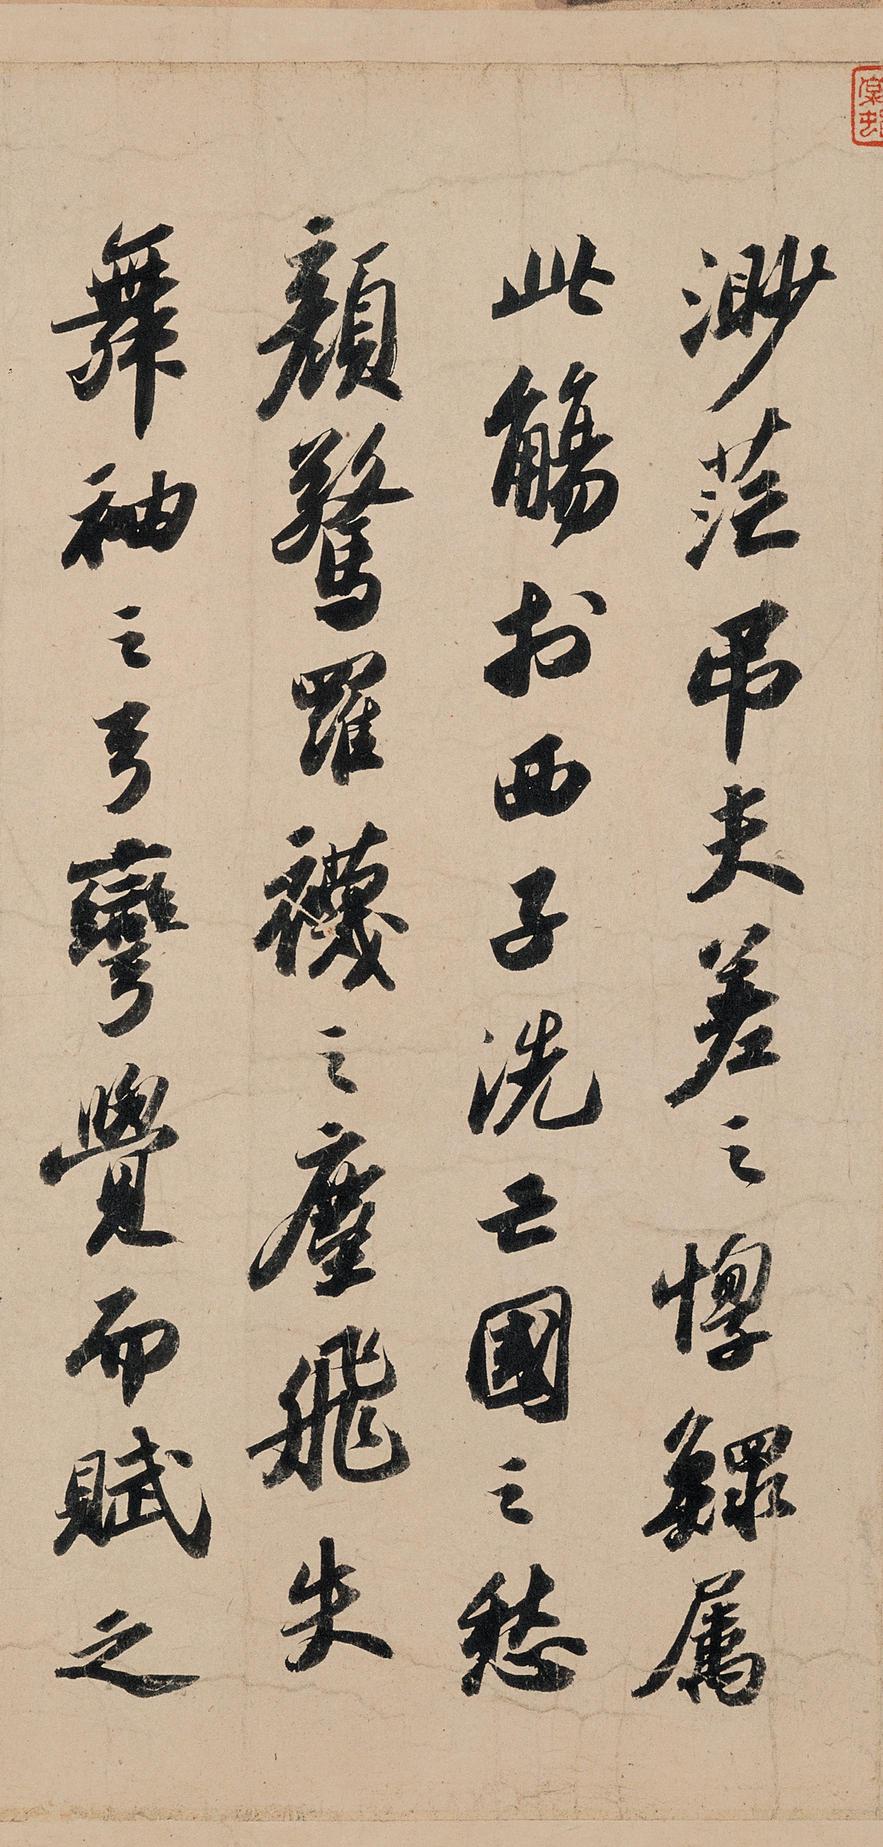 渺茫吊夫差之惸鰥属
此觴扵西子洗亡國之愁
顏驚羅襪之塵飛失
舞袖之弓彎覺而賦之